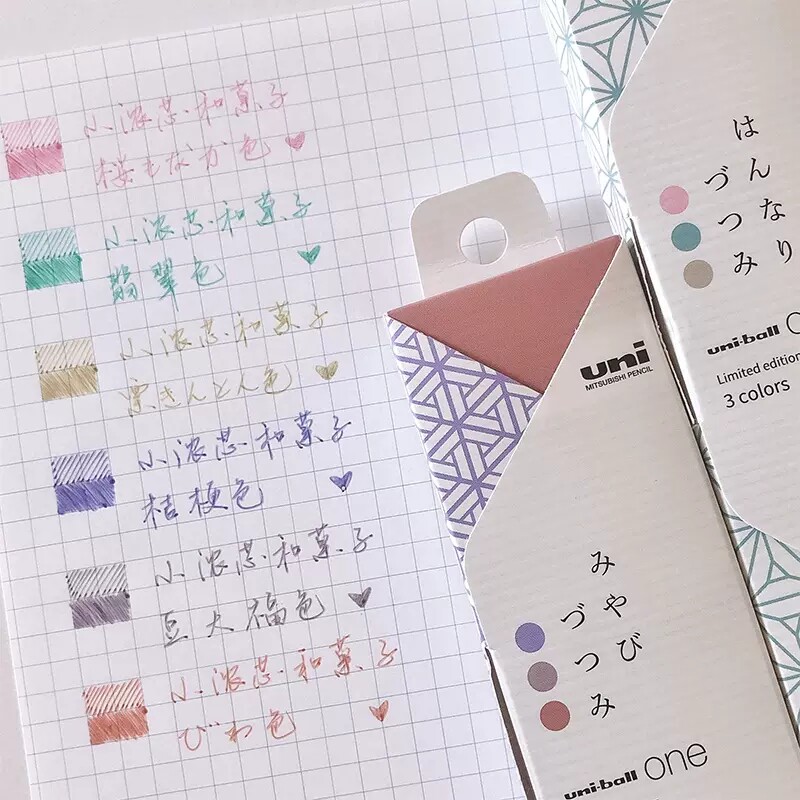 小浓芯·和菓子
桜もなか色
小浓芯·和菓子
翡翠色
小浓芯·和菓子
栗きんとん色
小浓芯·和菓子
桔梗色
小浓芯·和菓子
豆大福色
小浓芯·和菓子
びわ色
uni
MITSUBISHI PENCIL
みやび
づつみ
uni-ball one
はんなり
づつみ
uni-ball
Limited edition
3 colors